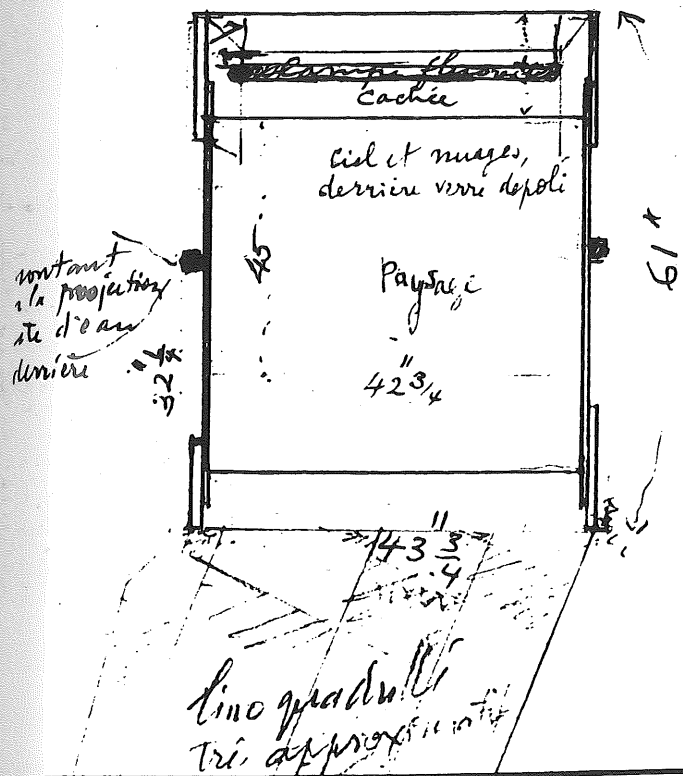 Lampe fluorescente
Cachée
Ciel et nuages,
derrière verre depoli
montant
projection
d'eau
derrière
45
Paysage
42" 3/4
61"
43" 3/4
lino quadrillé
approximatif